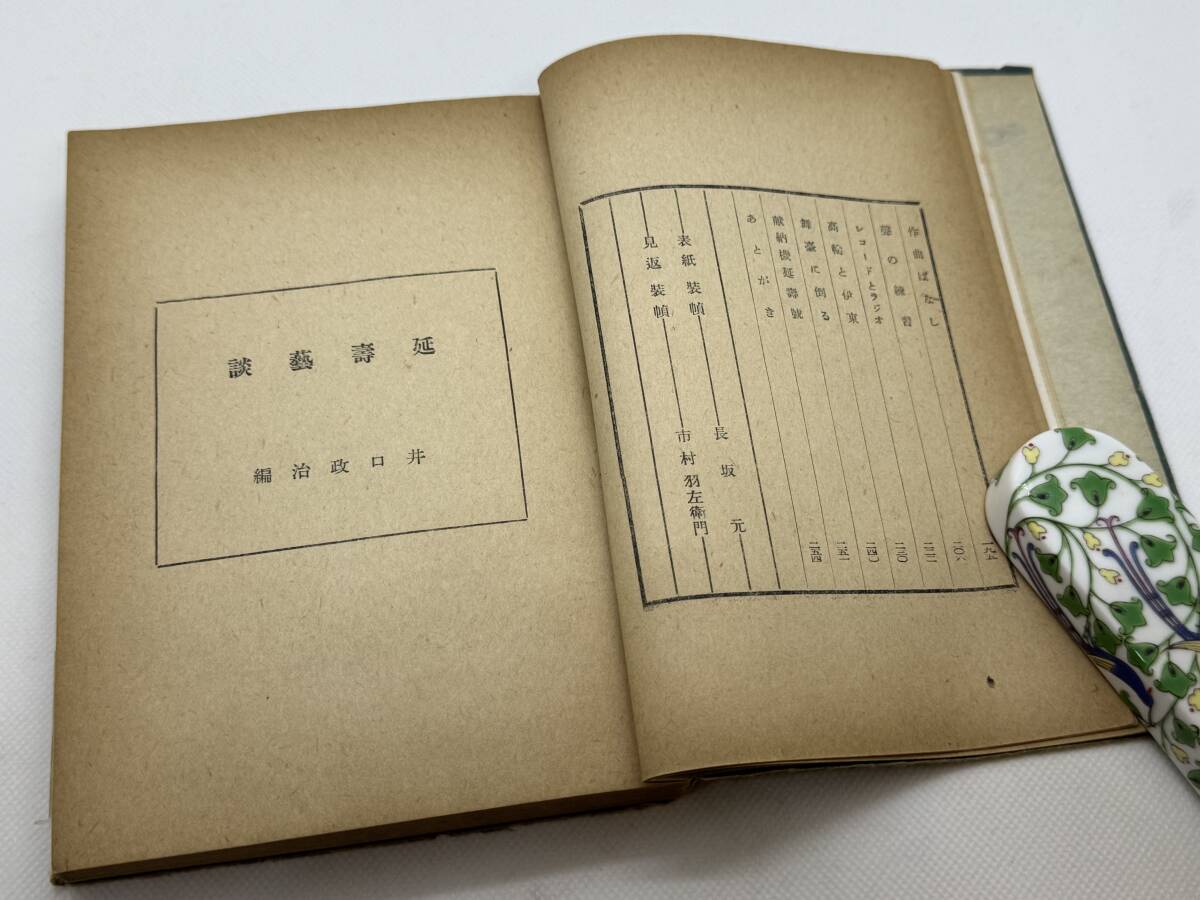 作曲ばなし 一九五
聲の練習 二〇六
レコードとラジオ
高輪と伊東
舞臺に倒る 二四〇
献納機延壽號 二五一
あとがき 二五四
表紙裝幀 長坂元
見返裝幀 市村羽左衛門
延壽藝談
井口政治編